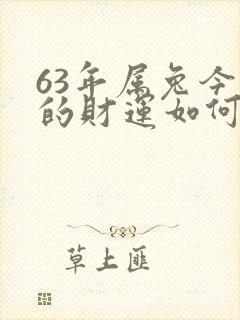 63年属兔今
的财运如何
草上匪